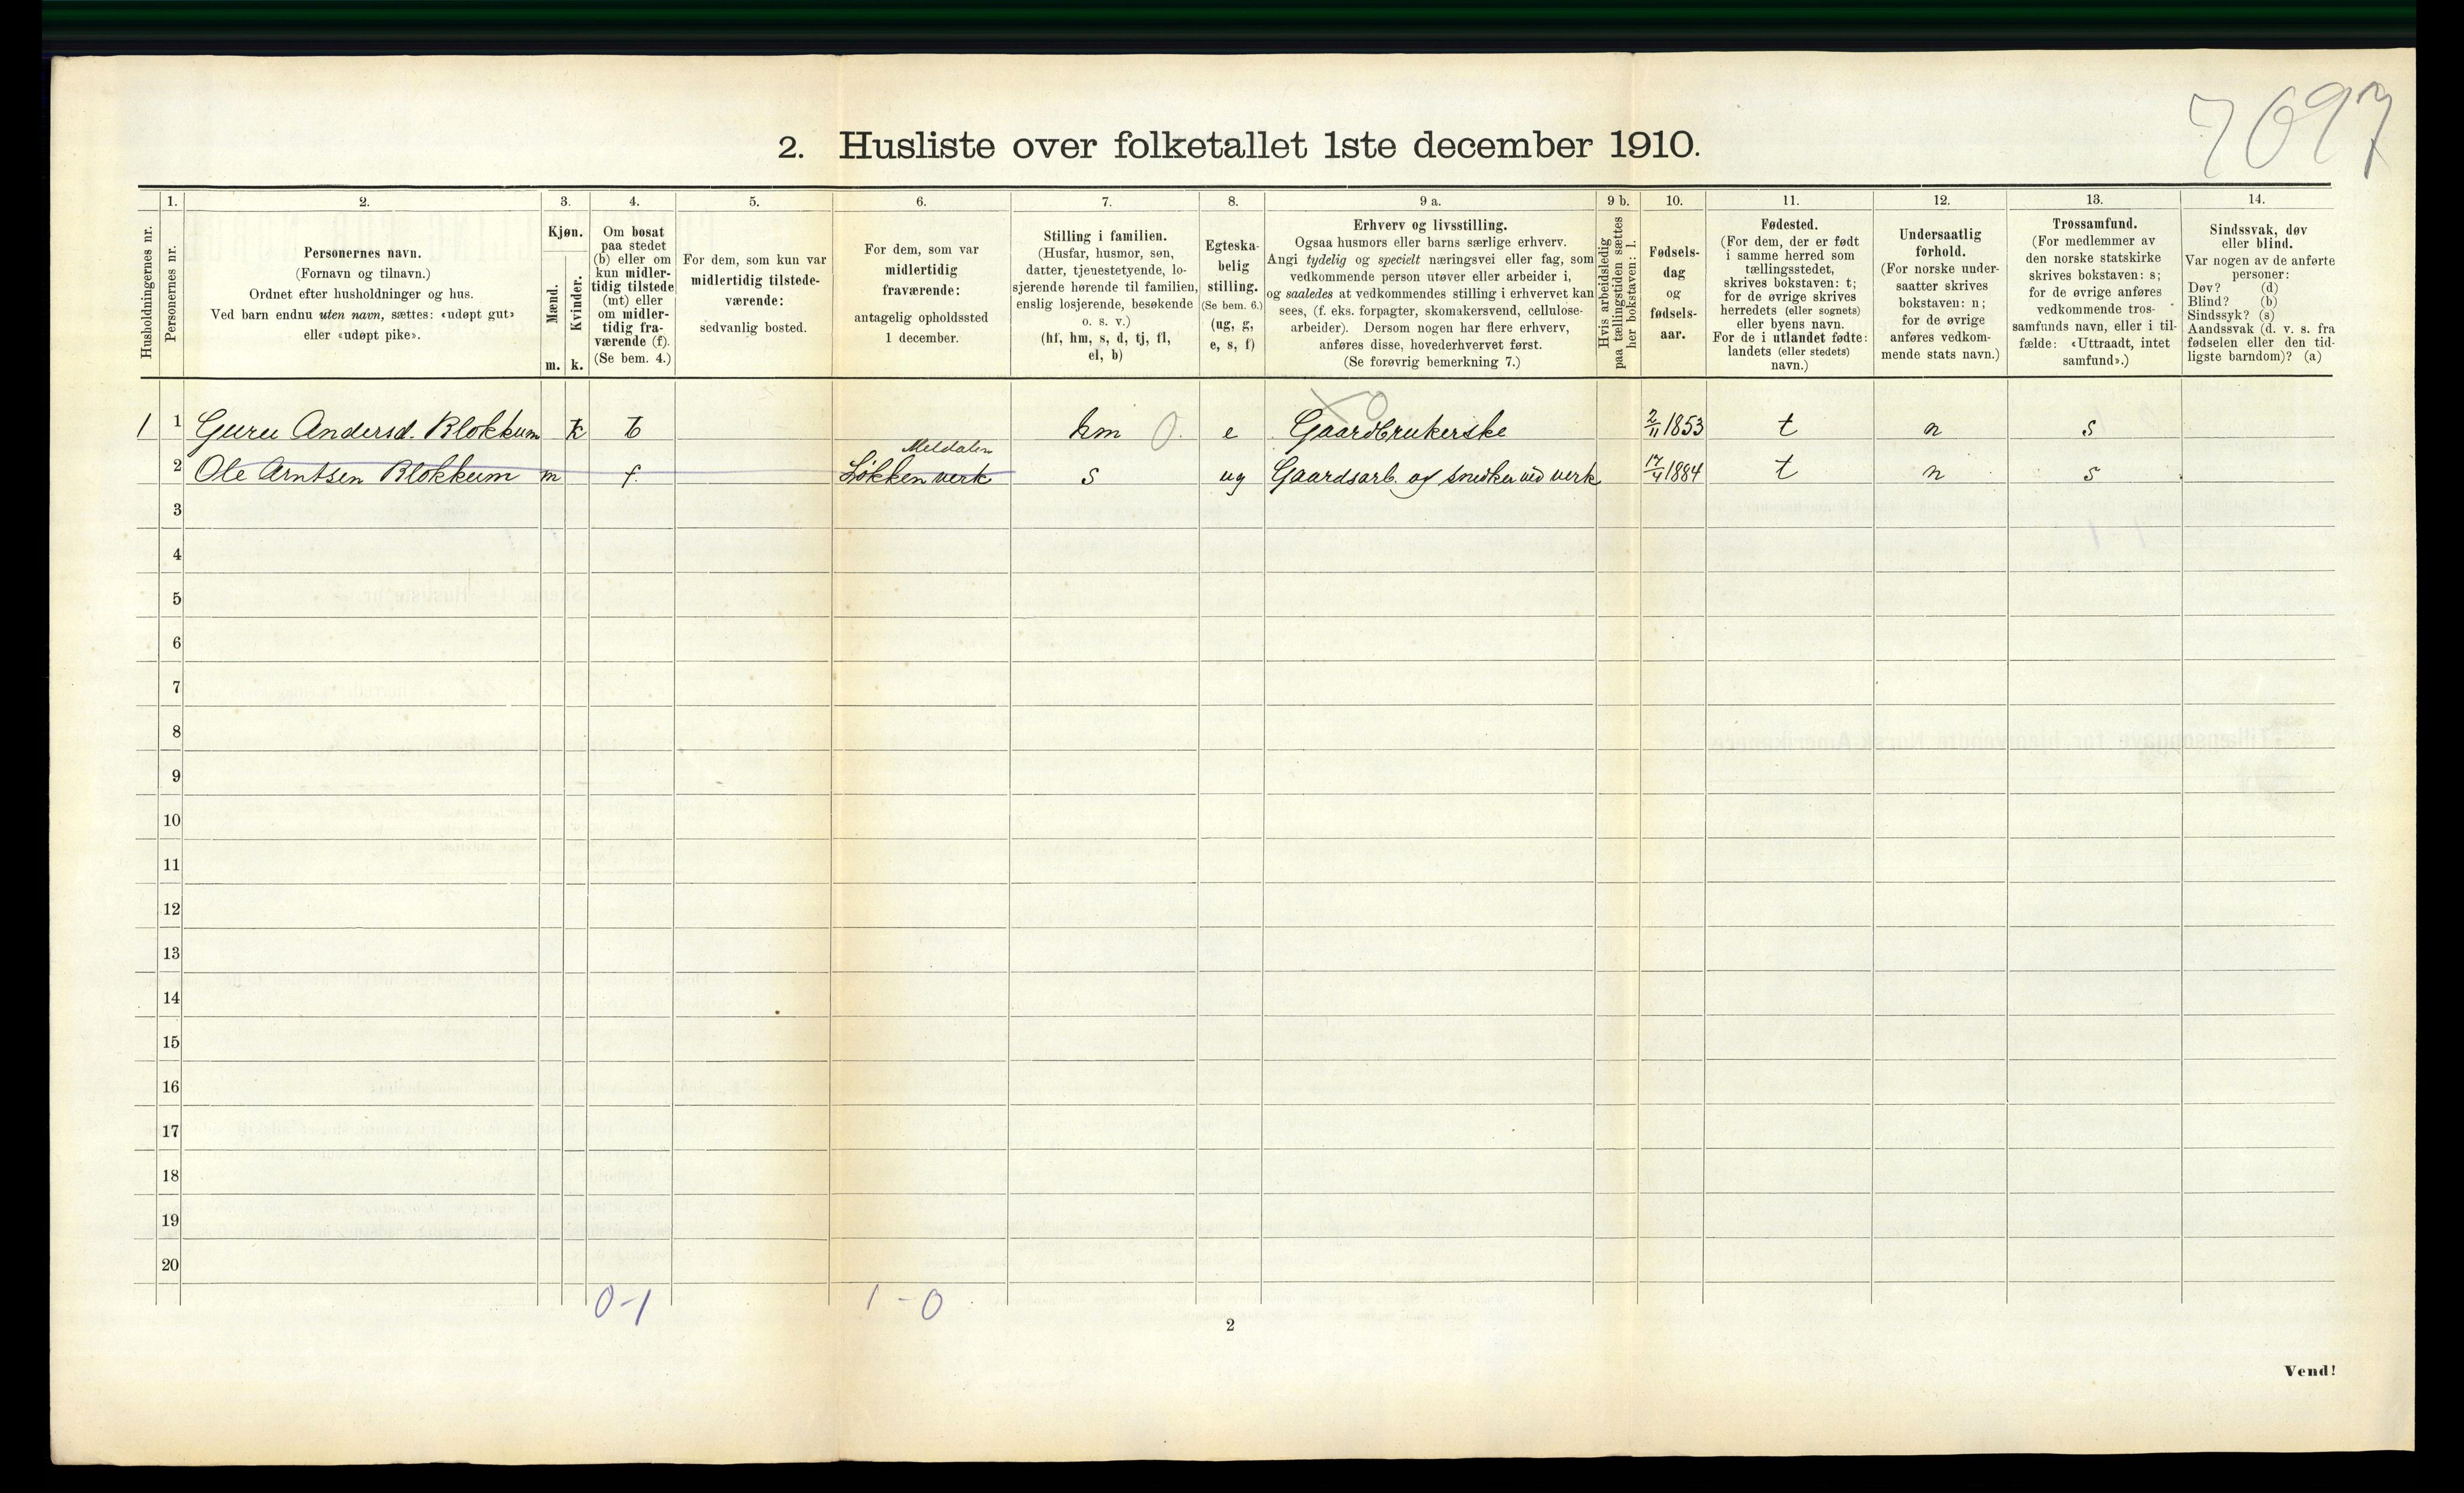 7097
2. Husliste over folketallet 1ste december 1910.
Husholdningernes nr.
1.
Personernes nr.
2.
Personernes navn.
(Fornavn og tilnavn.)
Ordnet efter husholdninger og hus.
Ved barn endnu uten navn, sættes: «udøpt gut»
eller «udøpt pike».
3.
Kjøn.
Mænd.
Kvinder.
m. k.
4.
Om bosat
paa stedet
(b) eller om
kun midler-
tidig tilstede
(mt) eller
om midler-
tidig fra-
værende (f).
(Se bem. 4.)
5.
For dem, som kun var
midlertidig tilstede-
værende:
sedvanlig bosted.
6.
For dem, som var
midlertidig
fraværende:
antagelig opholdssted
1 december.
7.
Stilling i familien.
(Husfar, husmor, søn,
datter, tjenestetyende, lo-
sjerende hørende til familien,
enslig losjerende, besøkende
o. s. v.)
(hf, hm, s, d, tj, fl,
el, b)
8.
Egteska-
belig
stilling.
(Se bem. 6.)
(ug, g,
e, s, f)
9 a.
Erhverv og livsstilling.
Ogsaa husmors eller barns særlige erhverv.
Angi tydelig og specielt næringsvei eller fag, som
vedkommende person utøver eller arbeider i,
og saaledes at vedkommendes stilling i erhvervet kan
sees, (f. eks. forpagter, skomakersvend, cellulose-
arbeider). Dersom nogen har flere erhverv,
anføres disse, hovederhvervet først.
(Se forøvrig bemerkning 7.)
9 b.
Hvis arbeidsledig
paa tællingstiden sættes
her bokstaven: l.
10.
Fødsels-
dag
og
fødsels-
aar.
11.
Fødested.
(For dem, der er født
i samme herred som
tællingsstedet,
skrives bokstaven: t;
for de øvrige skrives
herredets (eller sognets)
eller byens navn.
For de i utlandet fødte:
landets (eller stedets)
navn.)
12.
Undersaatlig
forhold.
(For norske under-
saatter skrives
bokstaven: n;
for de øvrige
anføres vedkom-
mende stats navn.)
13.
Trossamfund.
(For medlemmer av
den norske statskirke
skrives bokstaven: s;
for de øvrige anføres
vedkommende tros-
samfunds navn, eller i til-
fælde: «Uttraadt, intet
samfund».)
14.
Sindssvak, døv
eller blind.
Var nogen av de anførte
personer:
Døv? (d)
Blind? (b)
Sindssyk? (s)
Aandssvak (d. v. s. fra
fødselen eller den tid-
ligste barndom)? (a)
1 1 Guru Andersd. Blokkum k b hm 0. e Gaardbrukerske 2/11 1853 t n s
Meldalen
2 Ole Arntsen Blokkum m f. Løkken verk s ug Gaardsarb. og snedker ved verk 17/4 1884 t n s
3
4
5
6
7
8
9
10
11
12
13
14
15
16
17
18
19
20
0-1 1-0
2
Vend!